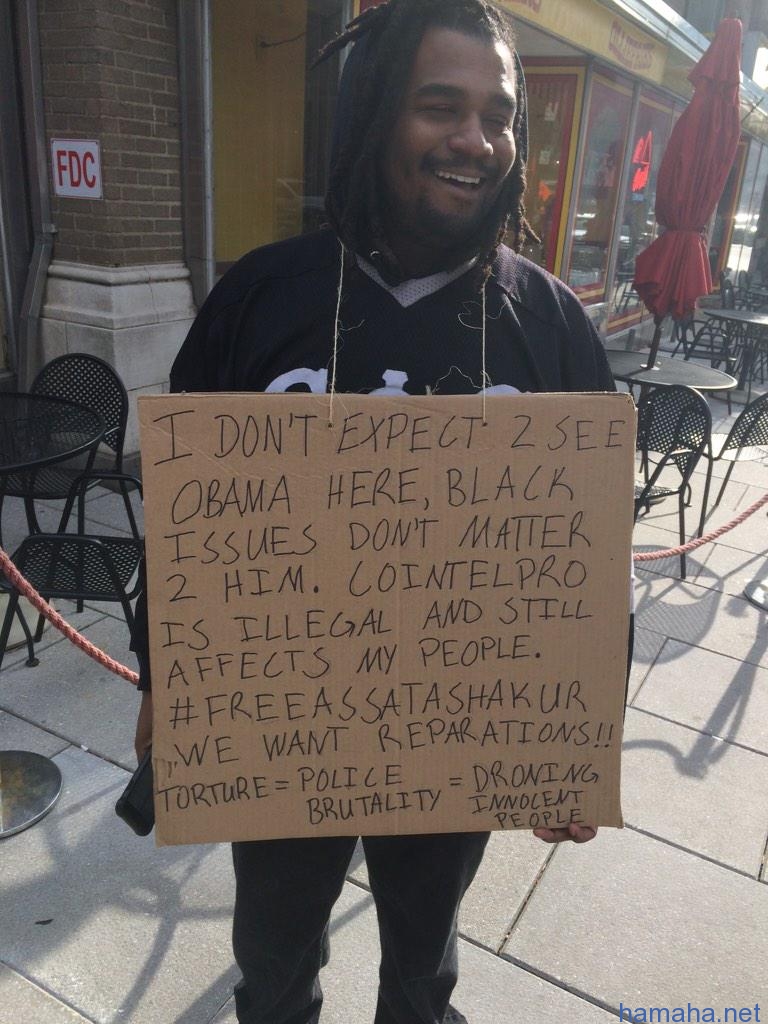 FDC
I DON'T EXPECT 2 SEE
OBAMA HERE, BLACK
ISSUES DON'T MATTER
2 HIM. COINTELPRO
IS ILLEGAL AND STILL
AFFECTS MY PEOPLE.
#FREEASSATASHAKUR
WE WANT REPARATIONS!!
TORTURE = POLICE BRUTALITY = DRONING INNOCENT PEOPLE
hamaha.net